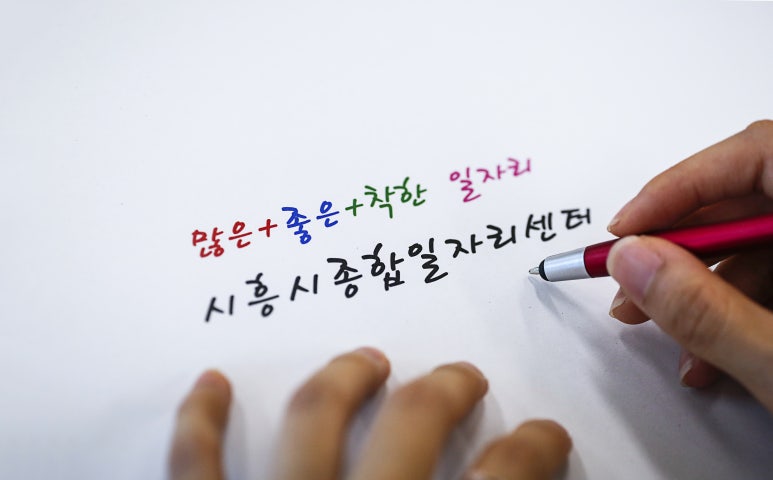 많은+좋은+착한 일자리
시흥시종합일자리센터